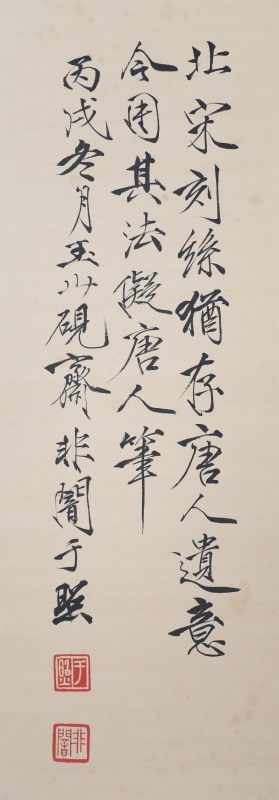 北宋刻絲猶存唐人遺意
今用其法儗唐人筆
丙戌冬月玉山硯齋非闇于照
于照
非闇